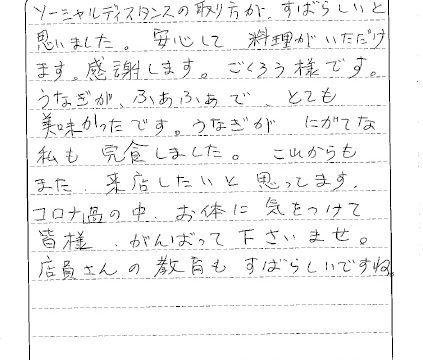 ソーシャルディスタンスの取り方が、すばらしいと
思いました。安心して 料理がいただけ
ます。感謝します。ごくろう様です。
うなぎが、ふあふあで、とても
美味かったです。うなぎが にがてな
私も 完食しました。これからも
また、来店したいと思ってます。
コロナ過の中、お体に気をつけて
皆様、がんばって下さいませ。
店員さんの教育もすばらしいですね。